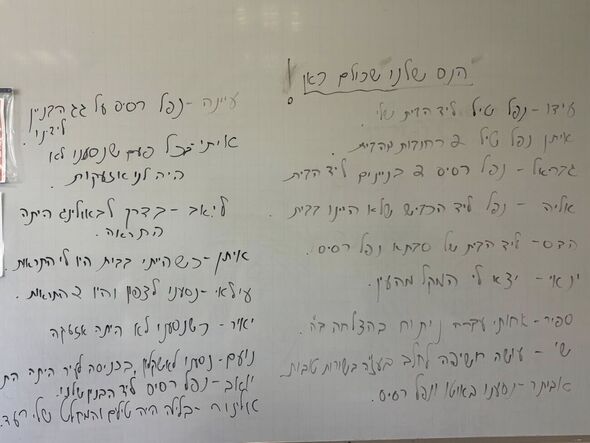 הנס שלנו שכולם כאן!
עידו - נפל טיל ליד הבית שלי.
איתן נפל טיל 2 רחובות מהבית.
גבראל - נפל רסיס 2 בניינים ליד הבית
אליה - נפל ליד הכביש שלא היינו בבית.
הדס - ליד הבית של סבתא נפל רסיס.
ינאי - יצא לי המקל מהעין.
ספיר - אחותי עברה ניתוח בהצלחה ב"ה.
שי - עושה חשיפה לחלב בעז"ה בשורות טובות.
אביתר - נסענו באוטו ונפל רסיס.
עיינה - נפל רסיס על גג הבניין
לידנו.
איתי - בכל פעם שנסענו לא
היה לנו אזעקות.
ליאב - בדרך לבאולינג היתה
התראה.
איתן - כשהייתי בבית היו לי התראות.
עילאי - נסענו לצפון והיו 2 התראות.
יאיר - כשנסענו לא היתה אזעקה
נועם - נסענו לאשקלון, בכניסה לעיר היתה הת
יואב - נפל רסיס ליד הבנק שלנו.
בלילה היה טילים והמקלט שלי רעד.